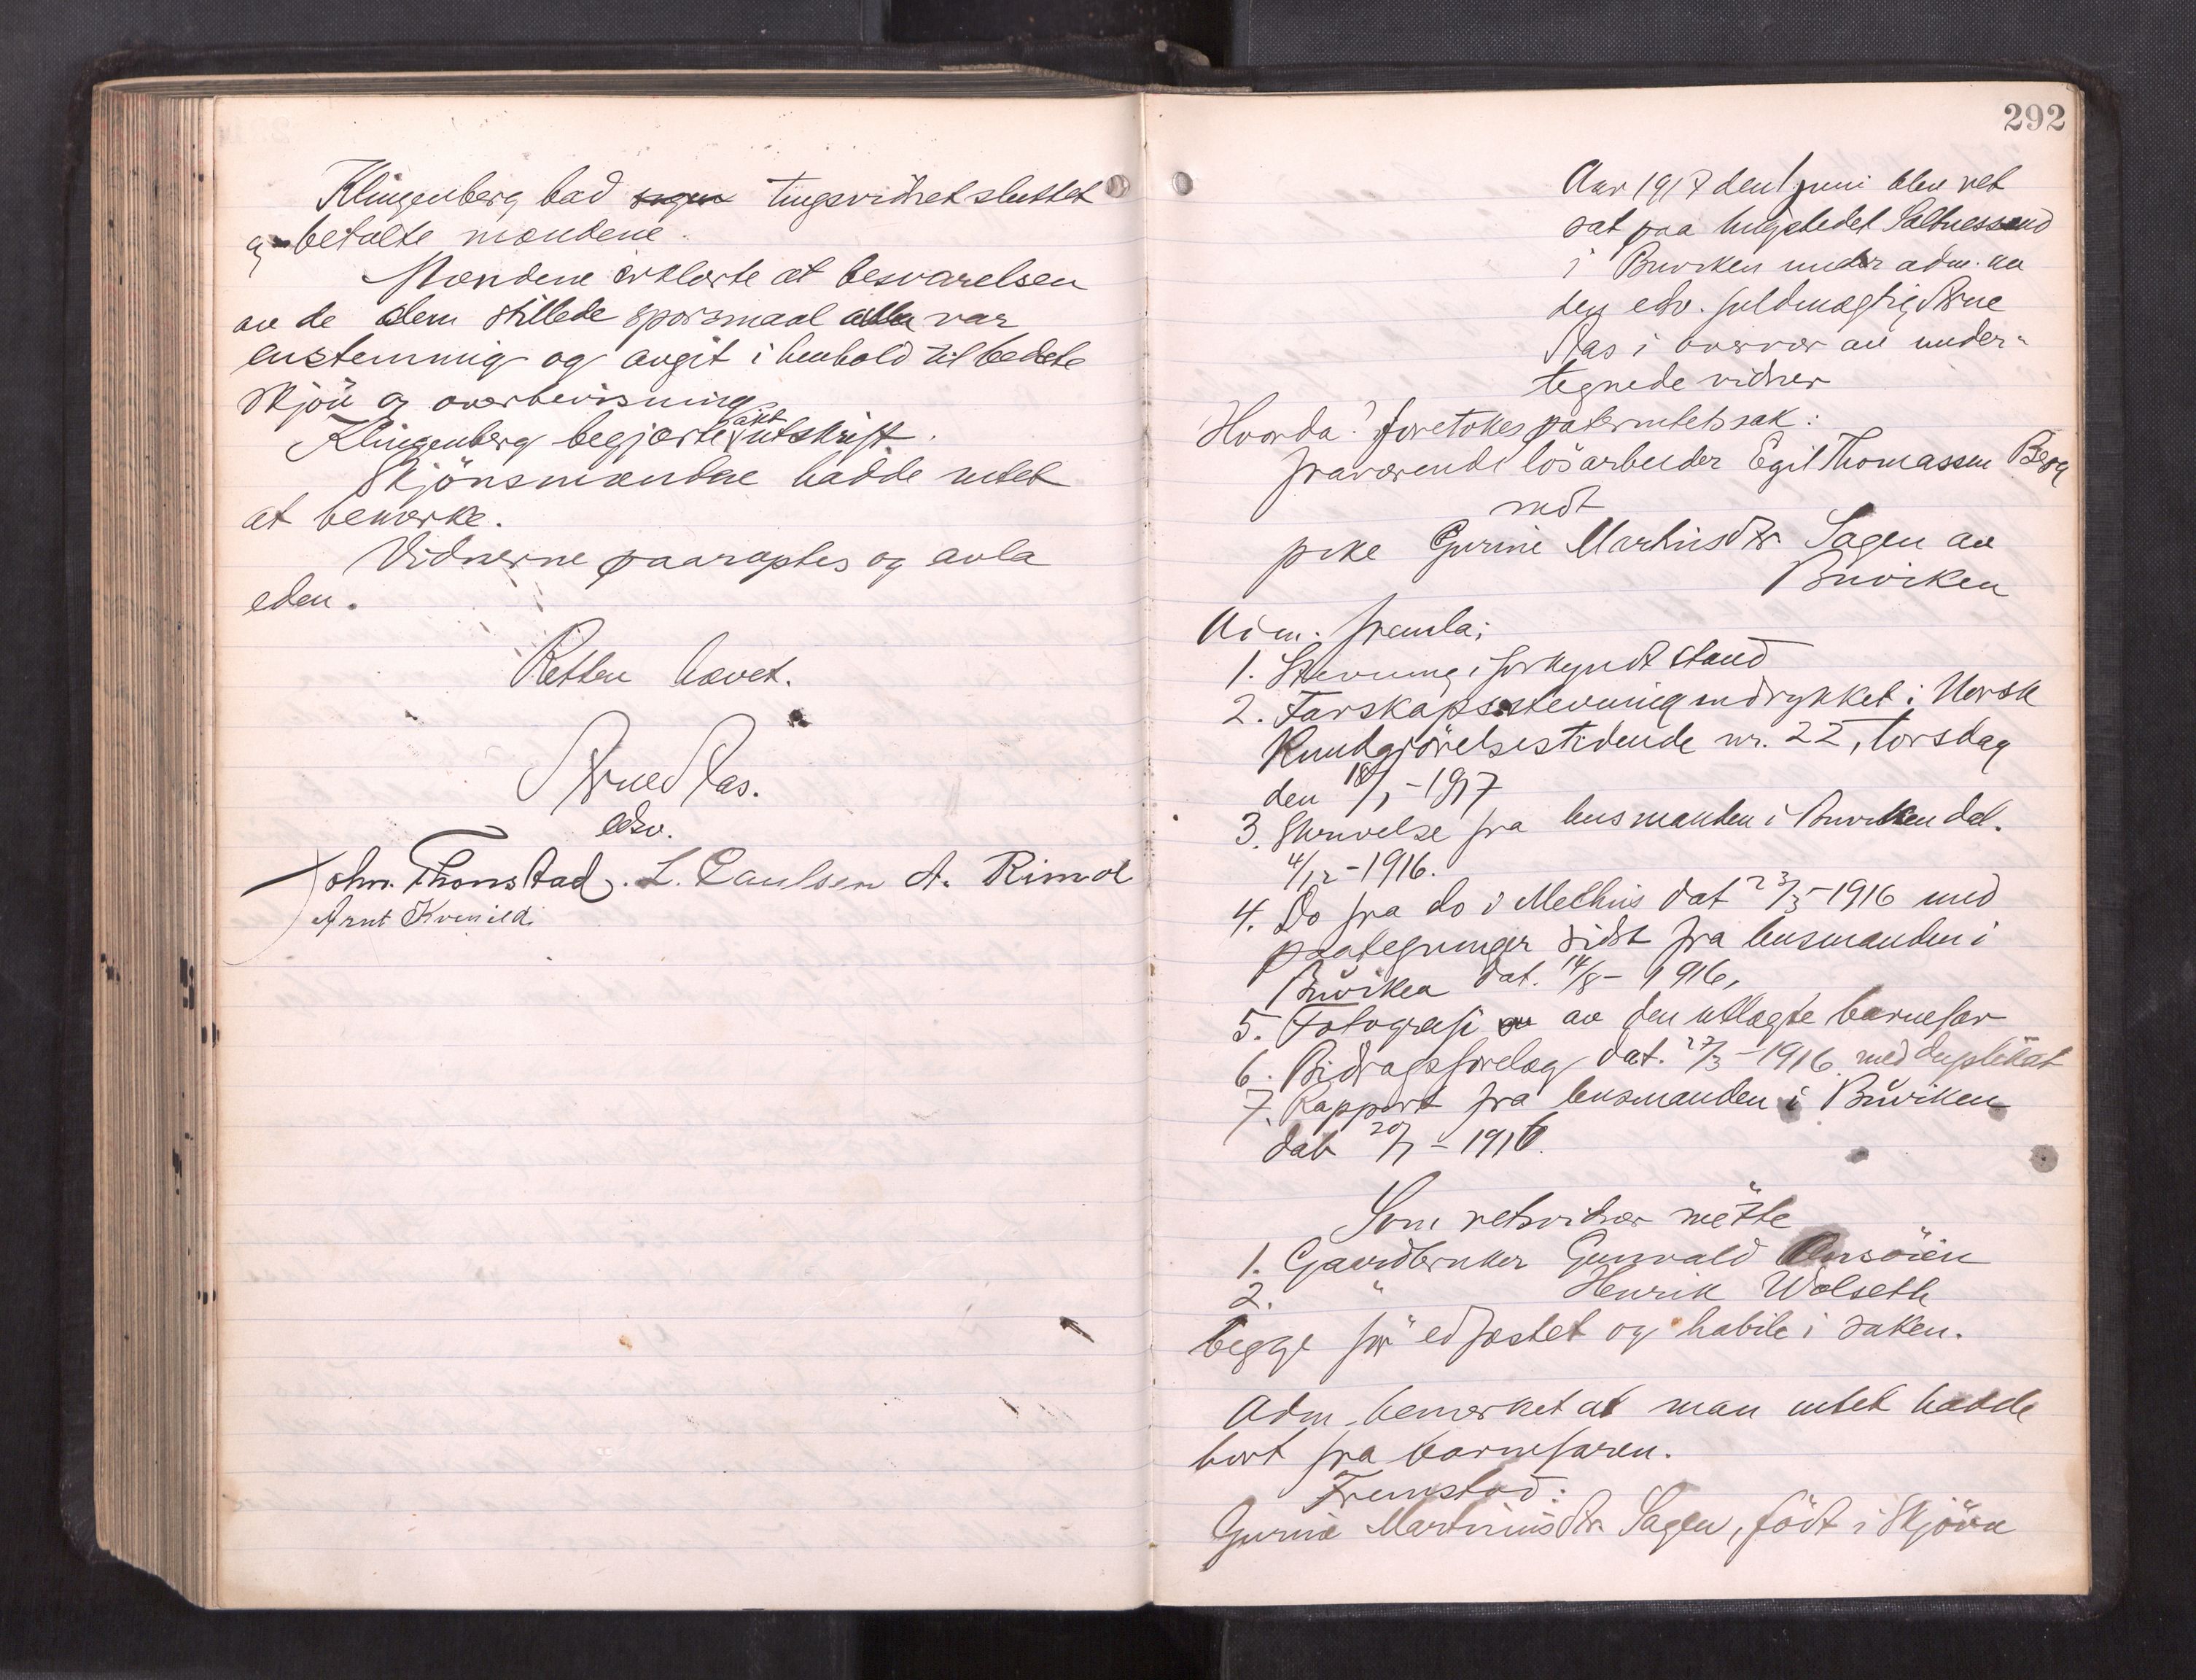 Klingenberg bad sagen tingsvidnet sluttet
og betalte mændene.
Mændene erklærte at besvarelsen
av de dem stillede spørsmaal alle var
enstemmig og avgit i henhold til bedste
skjön og overbevisning
Klingenberg begjærte akt utskrift.
Skjönsmændene hadde intet
at bemerke.
Vidnerne paaroptes og avla
eden.
Retten hævet.
Arne Aas.
edsv.
John. Thonstad. L. Paulsen A. Rimol
Arnt Kvenild.
292
Aar 1917 den 1 juni blev ret
sat paa tingstedet Saltnessand
i Buviken under adm. av
den edsv. fuldmægtig Arne
Aas i overvær av under-
tegnede vidner
Hvorda: foretokes paternitetssak:
fraværende lösarbeider Egil Thomassen Berg
mot
pike Gurine Martinsdtr. Sagen av
Buviken
Adm. fremla:
1. Stevning i forkyndt stand
2. Farskapsstevning indrykket i Norsk
Kundgjörelsestidende nr. 22, torsdag
den 18/1-1917
3. Skrivelse fra lensmanden i Buviken dat.
4/12-1916.
4. Do fra do i Melhus dat 23/3-1916 med
paategninger sidst fra lensmanden i
Buviken dat. 14/8-1916,
5. Fotografi av den utlagte barnefar
6. Bidragsforelæg dat. 27/3-1916 med duplikat
7. Rapport fra lensmanden i Buviken
dat 20/7-1916.
Som retsvidner mötte
1. Gaardbruker Gunvald
2. " Henrik Wolseth
begge för edfæstet og habile i saken.
Adm. bemerket at man intet hadde
hört fra barnefaren.
Fremstod:
Gurine Martinusdtr. Sagen, födt i Skjöra